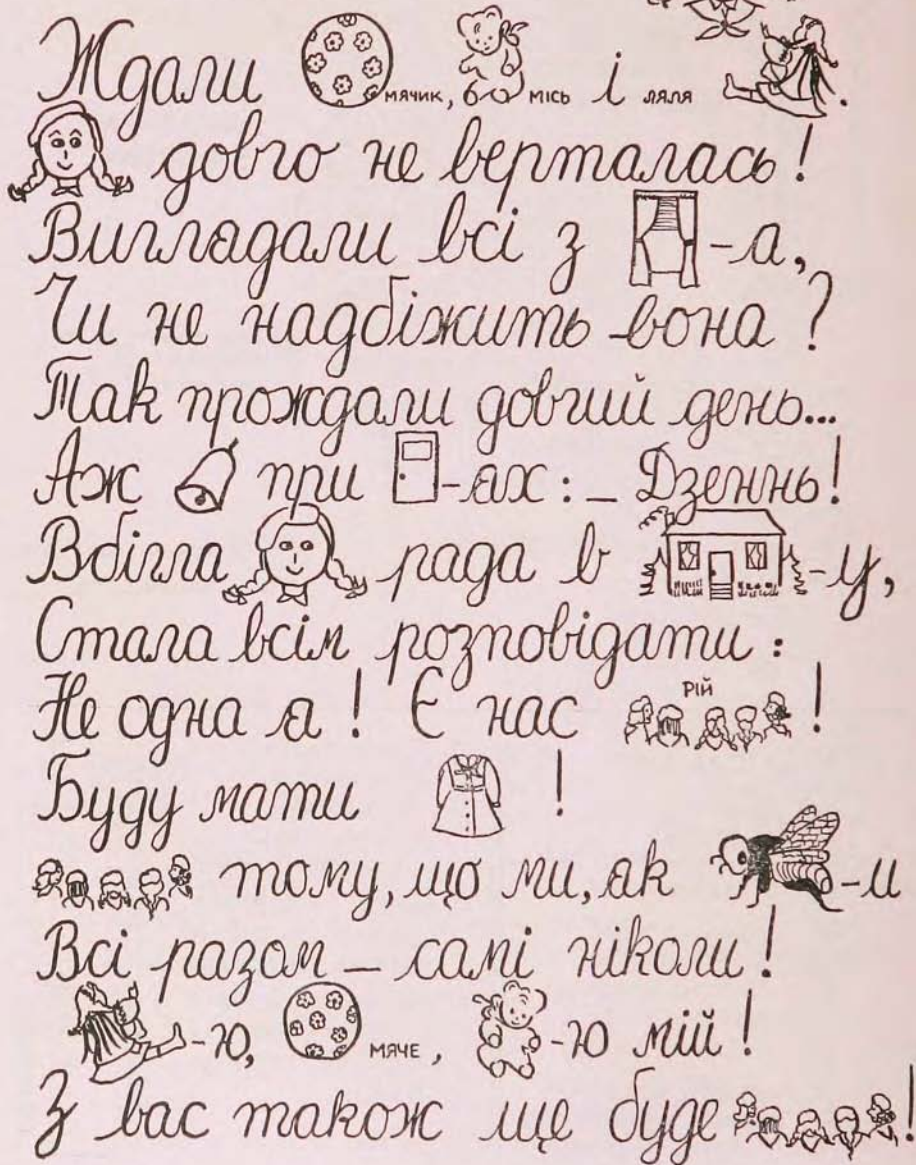 Ждали мячик, місь і ляля.
довго не верталась!
Виглядали всі з -а,
Чи не надбіжить вона?
Так прождали довгий день...
Аж при -ях: – Дзеннь!
Вбігла рада в -у,
Стала всім розповідати:
Не одна я! Є нас РІЙ!
Буду мати !
тому, що ми, як -и
Всі разом – самі ніколи!
-ю, МЯЧЕ, -ю мій!
З вас також ще буде !